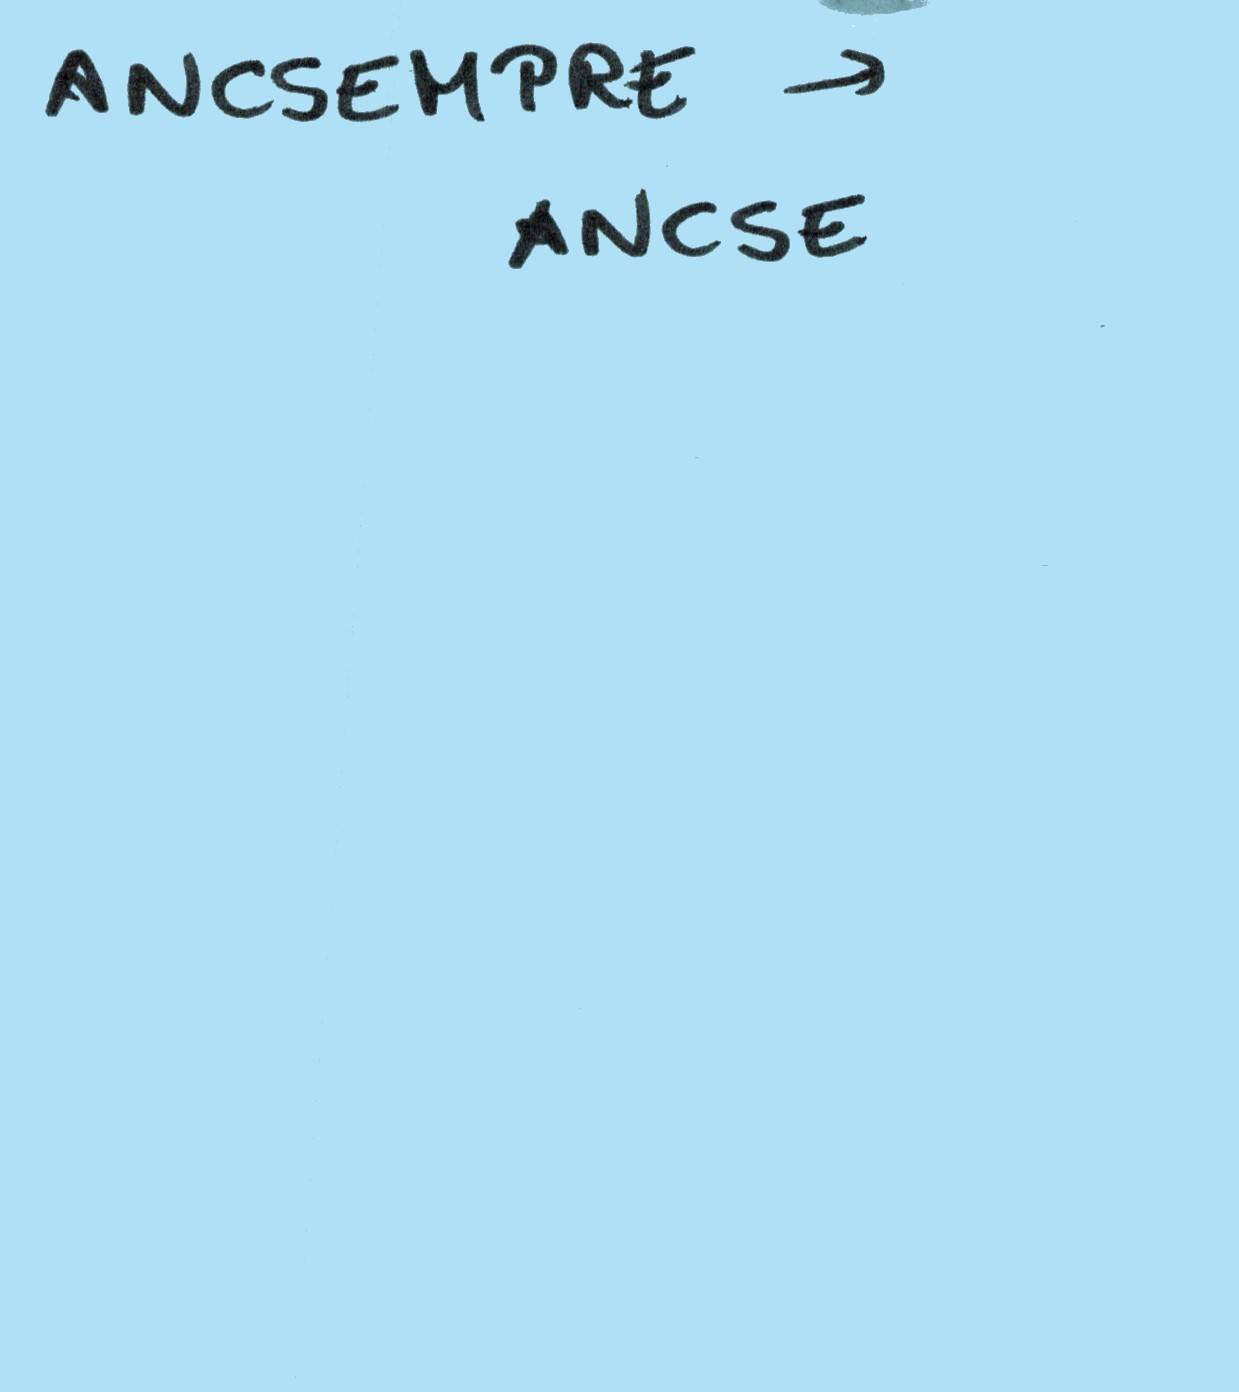 ANCSEMPRE →
ANCSE